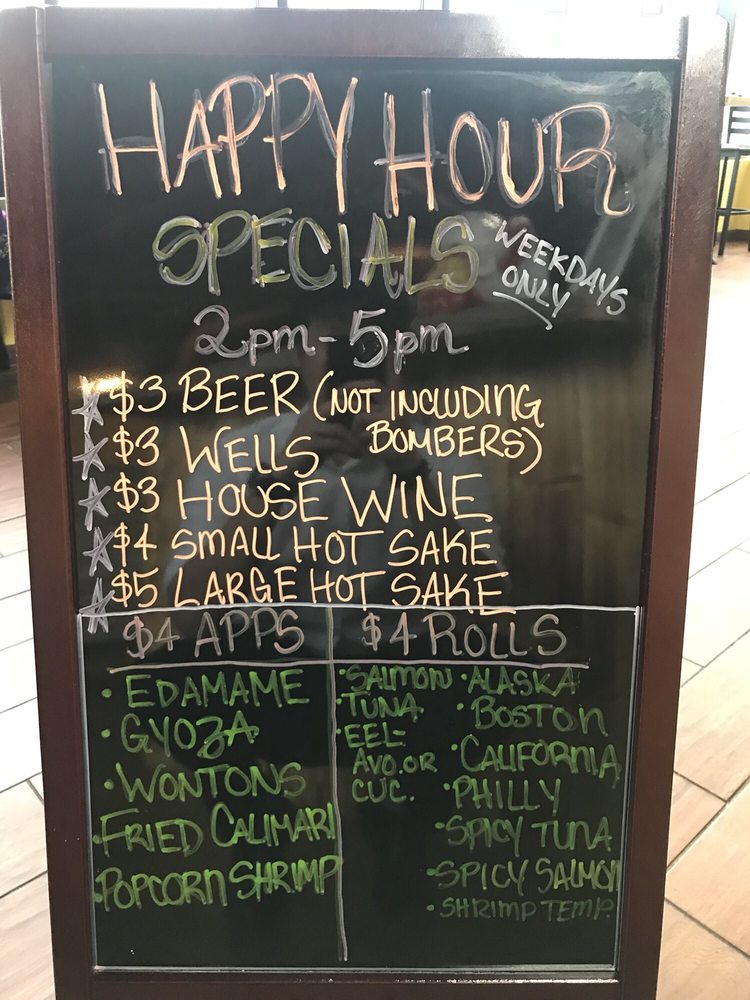 HAPPY HOUR
SPECIALS
WEEKDAYS
ONLY
2pm-5pm
☆ $3 BEER (NOT INCLUDING
BOMBERS)
☆ $3 WELLS
☆ $3 HOUSE WINE
☆ $4 SMALL HOT SAKE
☆ $5 LARGE HOT SAKE
$4 APPS
• EDAMAME
• GYOZA
• WONTONS
• FRIED CALIMARI
• POPCORN SHRIMP
$4 ROLLS
• SALMON
• TUNA
• EEL-
AVO. OR
CUC.
• ALASKA
• BOSTON
• CALIFORNIA
• PHILLY
• SPICY TUNA
• SPICY SALMON
• SHRIMP TEMP.